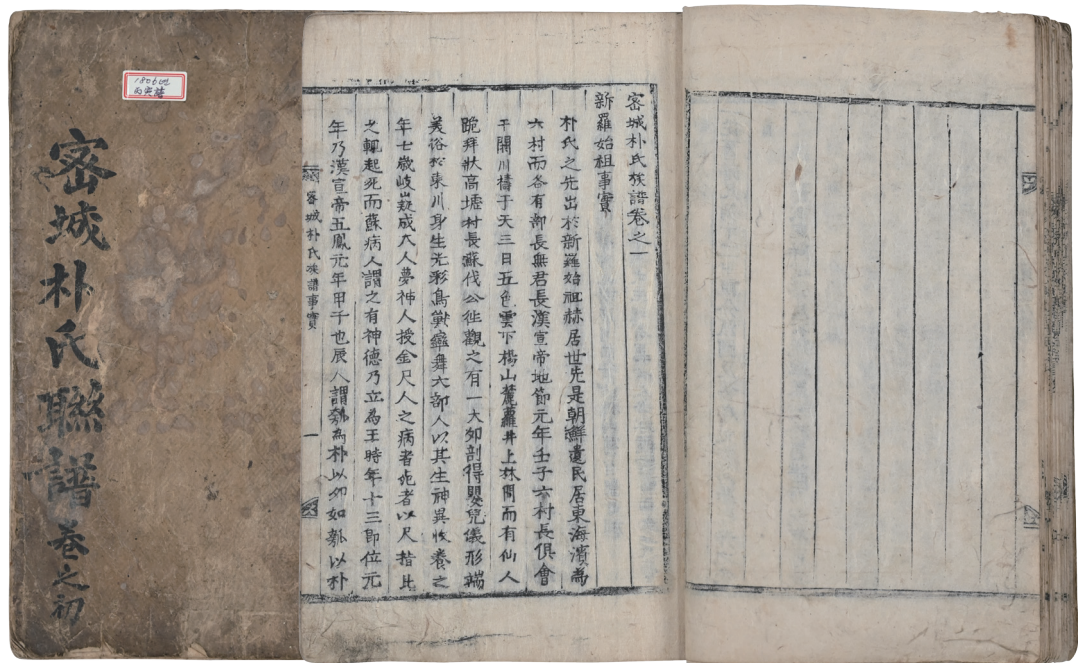 密城朴氏聯譜卷之初
密城朴氏族譜卷之一
新羅始祖事實
朴氏之先出於新羅始祖赫居世先是朝鮮遺民居東海濱為
六村而各有部長無君長漢宣帝地節元年壬子六村長俱會
于閼川禱于天三日五色雲下楊山麓蘿井上林間而有仙人
跪拜狀高墟村長蘇伐公徃觀之有一大夘剖得嬰兒儀形端
美浴於東川身生光彩鳥獸率舞六部人以其生神異收養之
年七歲岐嶷成大人夢神人授金尺人之病者死者以尺指其
之輒起死而蘇病人謂之有神德乃立為王時年十三即位元
年乃漢宣帝五鳳元年甲子也辰人謂瓠為朴以夘如瓠以朴
密城朴氏族譜事實 一